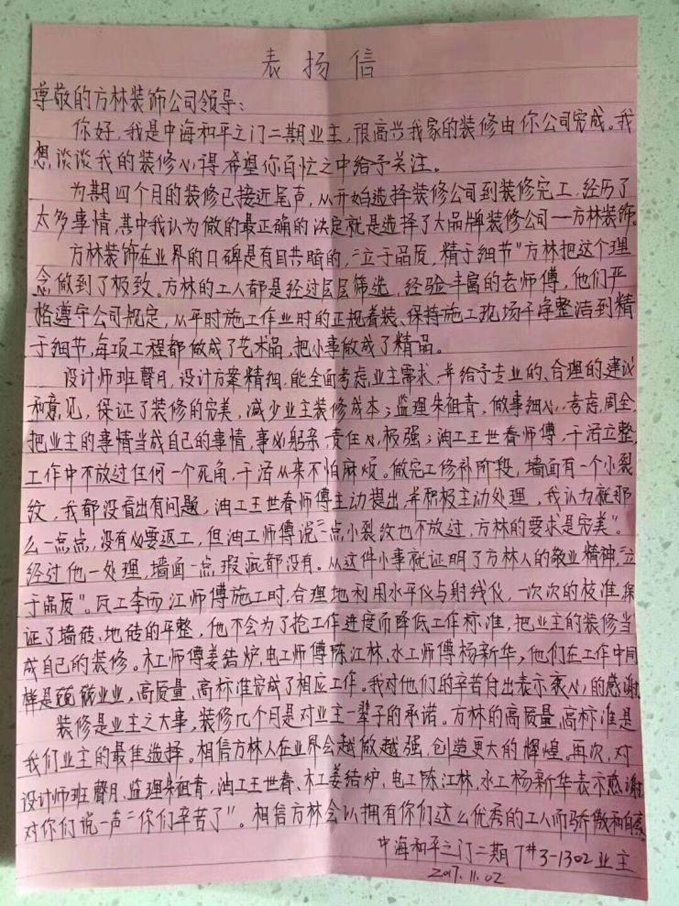 表扬信
尊敬的方林装饰公司领导:
你好,我是中海和平之门二期业主,很高兴我家的装修由你公司完成。我
想谈谈我的装修心得,希望你百忙之中给予关注。
为期四个月的装修已接近尾声,从开始选择装修公司到装修完工,经历了
太多事情,其中我认为做的最正确的决定就是选择了大品牌装修公司一方林装饰。
方林装饰在业界的口碑是有目共睹的,“立于品质,精于细节”方林把这个理
念做到了极致。方林的工人都是经过层层筛选,经验丰富的老师傅,他们严
格遵守公司规定,从平时施工作业时的正规着装、保持施工现场干净整洁到精
于细节,每项工程都做成了艺术品,把小事做成了精品。
设计师班謦月,设计方案精细,能全面考虑业主需求,并给予专业的、合理的建议
和意见,保证了装修的完美,减少业主装修成本;监理朱祖青,做事细心,考虑周全,
把业主的事情当成自己的事情,事必躬亲,责任心极强;油工王世春师傅,干活立整,
工作中不放过任何一个死角,干活从来不怕麻烦。做完工修补阶段,墙面有一个小裂
纹,我都没看出有问题,油工王世春师傅主动提出,并积极主动处理,我认为就那
么一点点,没有必要返工,但油工师傅说“一点小裂纹也不放过,方林的要求是完美”。
经过他一处理,墙面一点瑕疵都没有。从这件小事就证明了方林人的敬业精神,“立
于品质”。瓦工李西江师傅施工时,合理地利用水平仪与射线仪,一次次的校准,保
证了墙砖、地砖的平整,他不会为了抢工作进度而降低工作标准,把业主的装修当
成自己的装修。木工师傅姜结炉,电工师傅陈江林,水工师傅杨新华,他们在工作中同
样是兢兢业业,高质量、高标准完成了相应工作。我对他们的辛苦付出表示衷心的感谢
装修是业主之大事,装修几个月是对业主一辈子的承诺。方林的高质量、高标准是
我们业主的最佳选择。相信方林人在业界会越做越强,创造更大的辉煌。再次,对
设计师班謦月,监理朱祖青,油工王世春、木工姜结炉,电工陈江林,水工杨新华表示感谢
对你们说一声“你们辛苦了”。相信方林会以拥有你们这么优秀的工人而骄傲和自豪
中海和平之门二期7#3-1302业主
2017.11.02